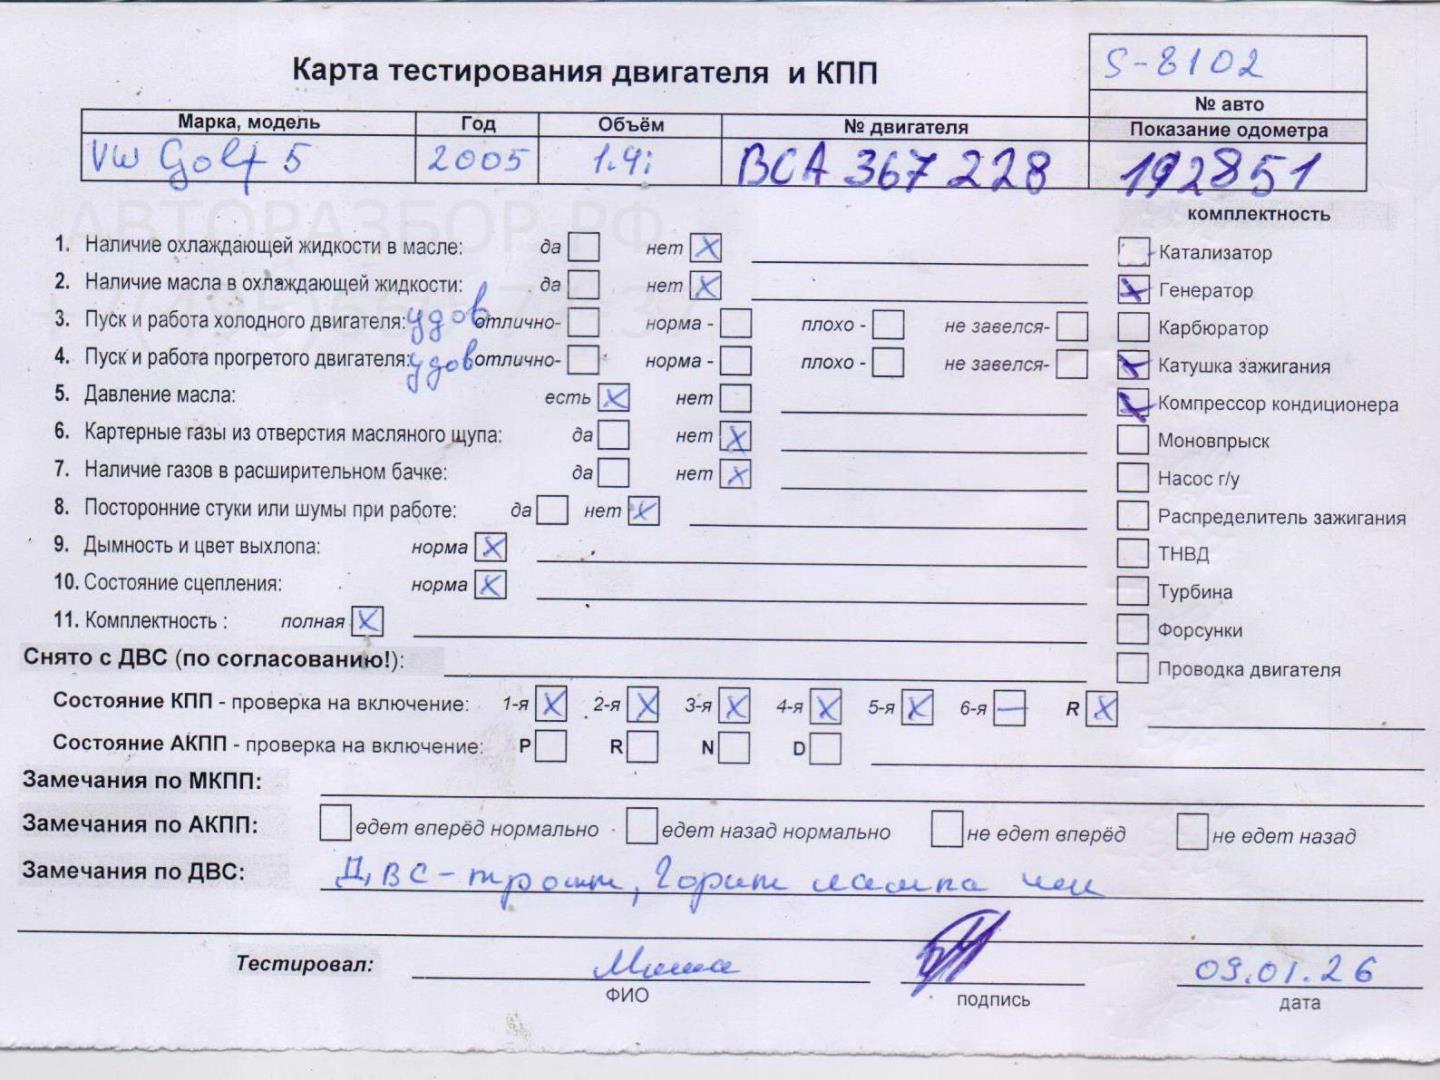 S-8102
Карта тестирования двигателя и КПП
№ авто
Марка, модель Год Объём № двигателя Показание одометра
VW Golf 5 2005 1.4i BCA 367 228 192851
комплектность
АВТОРАЗБОР.РФ
1. Наличие охлаждающей жидкости в масле: да нет X Катализатор
2. Наличие масла в охлаждающей жидкости: да нет X Генератор
3. Пуск и работа холодного двигателя: удов отлично- норма - плохо - не завелся- Карбюратор
4. Пуск и работа прогретого двигателя: удов отлично- норма - плохо - не завелся- Катушка зажигания
5. Давление масла: есть X нет Компрессор кондиционера
6. Картерные газы из отверстия масляного щупа: да нет X Моновпрыск
7. Наличие газов в расширительном бачке: да нет X Насос г/у
8. Посторонние стуки или шумы при работе: да нет X Распределитель зажигания
9. Дымность и цвет выхлопа: норма X ТНВД
10. Состояние сцепления: норма X Турбина
11. Комплектность : полная X Форсунки
Снято с ДВС (по согласованию!): Проводка двигателя
Состояние КПП - проверка на включение: 1-я X 2-я X 3-я X 4-я X 5-я X 6-я — R X
Состояние АКПП - проверка на включение: P R N D
Замечания по МКПП:
Замечания по АКПП: едет вперёд нормально едет назад нормально не едет вперёд не едет назад
Замечания по ДВС: ДВС-троит, Горит лампа чек
Тестировал: Миша 09.01.26
ФИО подпись дата